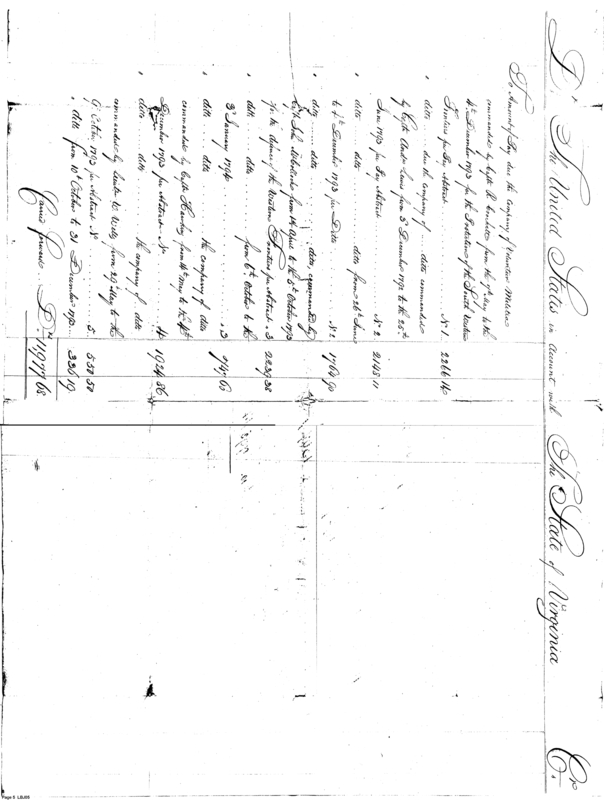 Dr The United States in account with The State of Virginia Cr
To Amount of Pay due the company of Volunteer Militia
commanded by Capt from the 7th May to the
4th December 1793 for the Protection of the South Western
Frontiers per Pay Abstract No 1. 2266 16
" ditto due the company of ditto commanded
by Capt Andw Lewis from 3d December 1792 to the 25th
June 1793 per Pay Abstract No 2 2143 11
" ditto ditto ditto from 26th June
to 4th December 1793 per Ditto No 2 1769 90
" ditto ditto ditto commanded by
Capt John from 14 April to the 5th October 1793
for the defence of the Western Frontiers per Abstract " 3 2239 38
" ditto ditto from 6th October to the
3d January 1794 " 3 747 6
" ditto ditto the company of ditto
commanded by Capt Hawkins from 14th May to the 4th
December 1793 per Abstract No 4 1924 86
" ditto ditto the company of ditto
commanded by from 29 May to the
9 October 1793 per Abstract No 5. 550 50
" ditto from 10th October to 31 December 1793 336 19
Carried forward Drs 11977 68
Page 5 LBJ05